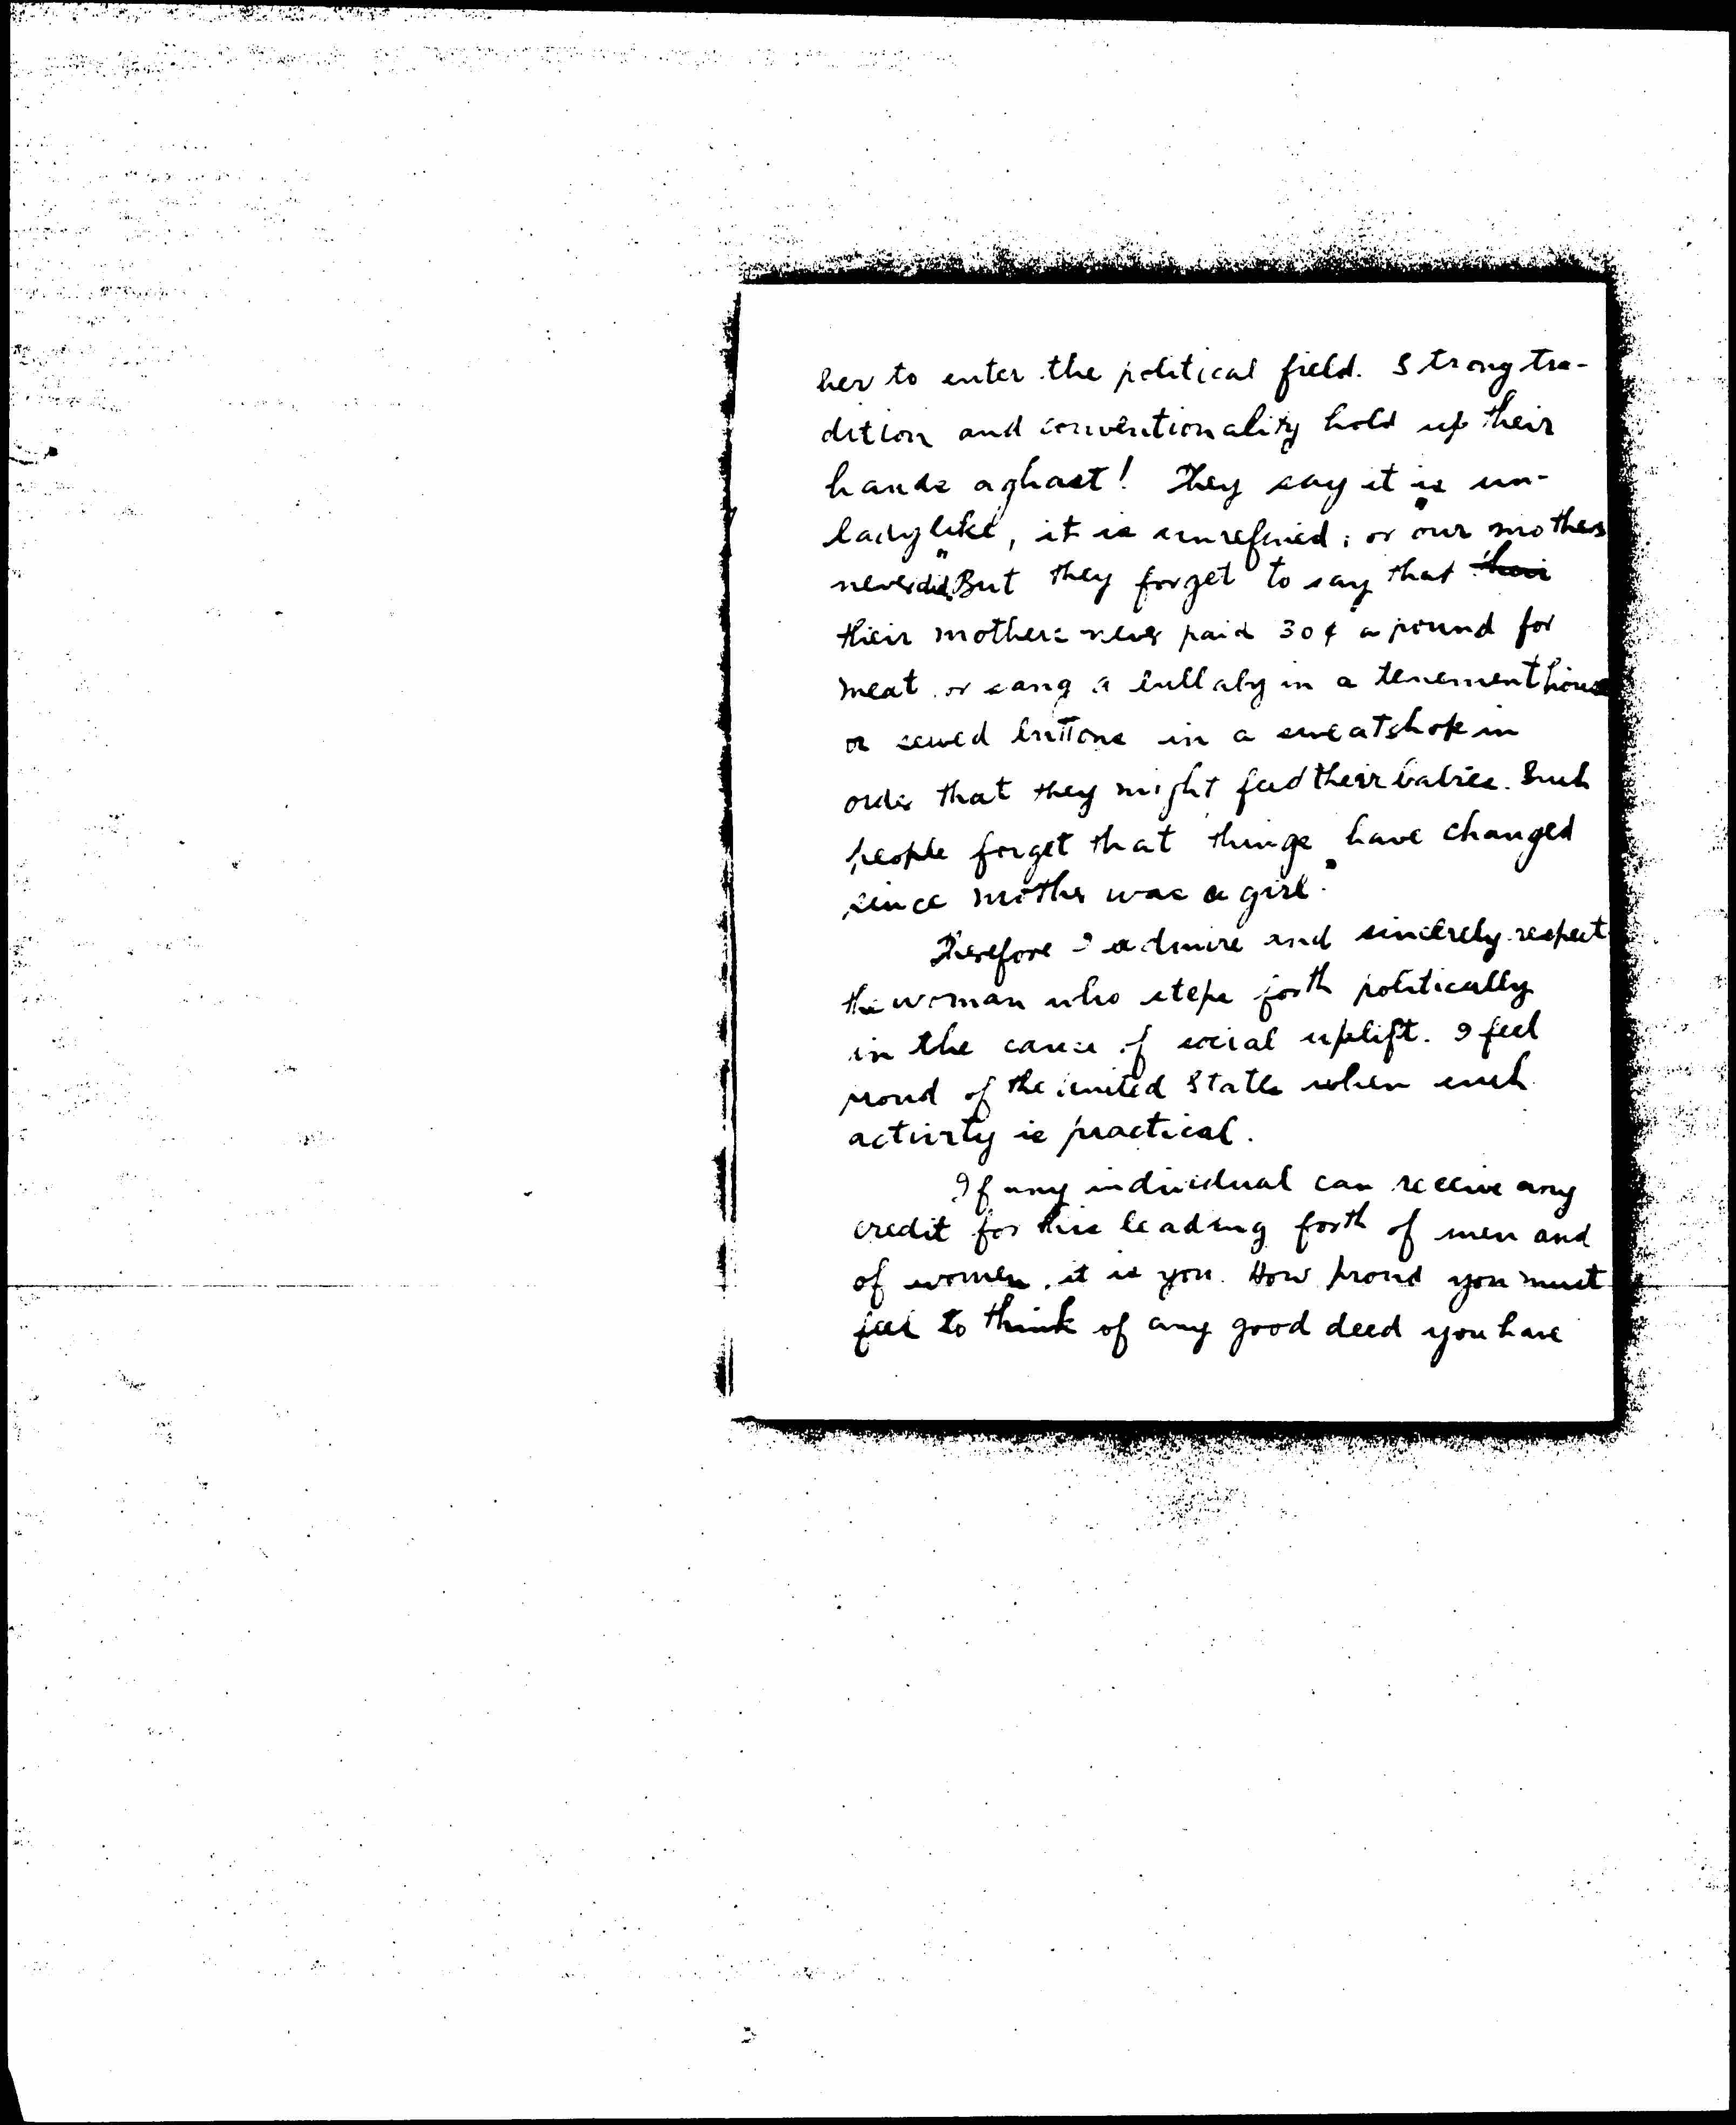 her to enter the political field. Strong tra-
dition and conventionality hold up their
hands aghast! They say it is un-
ladylike, it is unrefined, or "our mothers
never did." But they forget to say that their
their mothers never paid 30¢ a pound for
meat or sang a lullaby in a tenement house
or sewed buttons in a sweatshop in
order that they might feed their babies. Such
people forget that "things have changed
since mother was a girl."
Therefore I admire and sincerely respect
the woman who steps forth politically
in the cause of social uplift. I feel
proud of the United States when such
activity is practical.
If any individual can receive any
credit for this leading forth of men and
of women, it is you. How proud you must
feel to think of any good deed you have